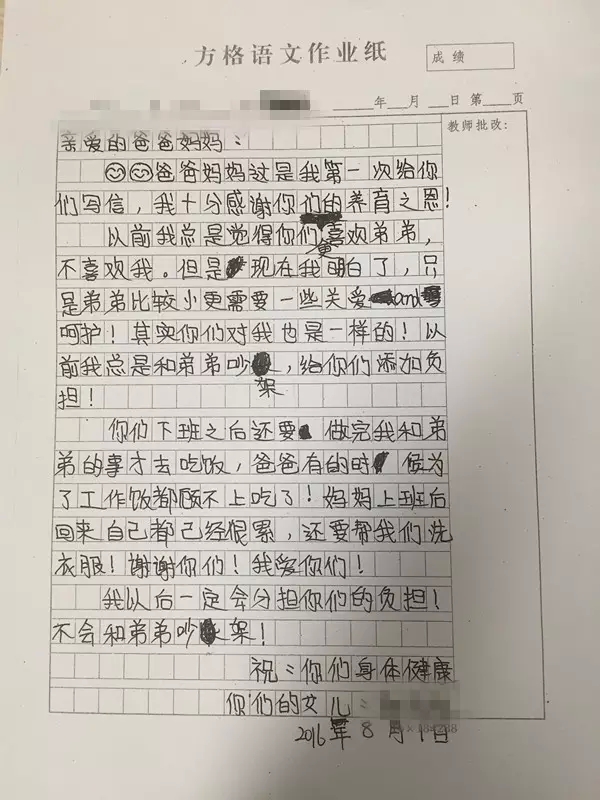 方格语文作业纸
成绩
年 月 日 第 页
教师批改:
亲爱的爸爸妈妈:
爸爸妈妈这是我第一次给你
们写信,我十分感谢你们的养育之恩!
以前我总是觉得你们更喜欢弟弟,
不喜欢我。但是现在我明白了,只
是弟弟比较小更需要一些关爱and
呵护!其实你们对我也是一样的!以
前我总是和弟弟吵架,给你们添加负
担!
你们下班之后还要做完我和弟
弟的事才去吃饭,爸爸有的时候为
了工作饭都顾不上吃了!妈妈上班后
回来自己都已经很累,还要帮我们洗
衣服!谢谢你们!我爱你们!
我以后一定会分担你们的负担!
不会和弟弟吵架!
祝:你们身体健康
你们的女儿:
2016年8月1日